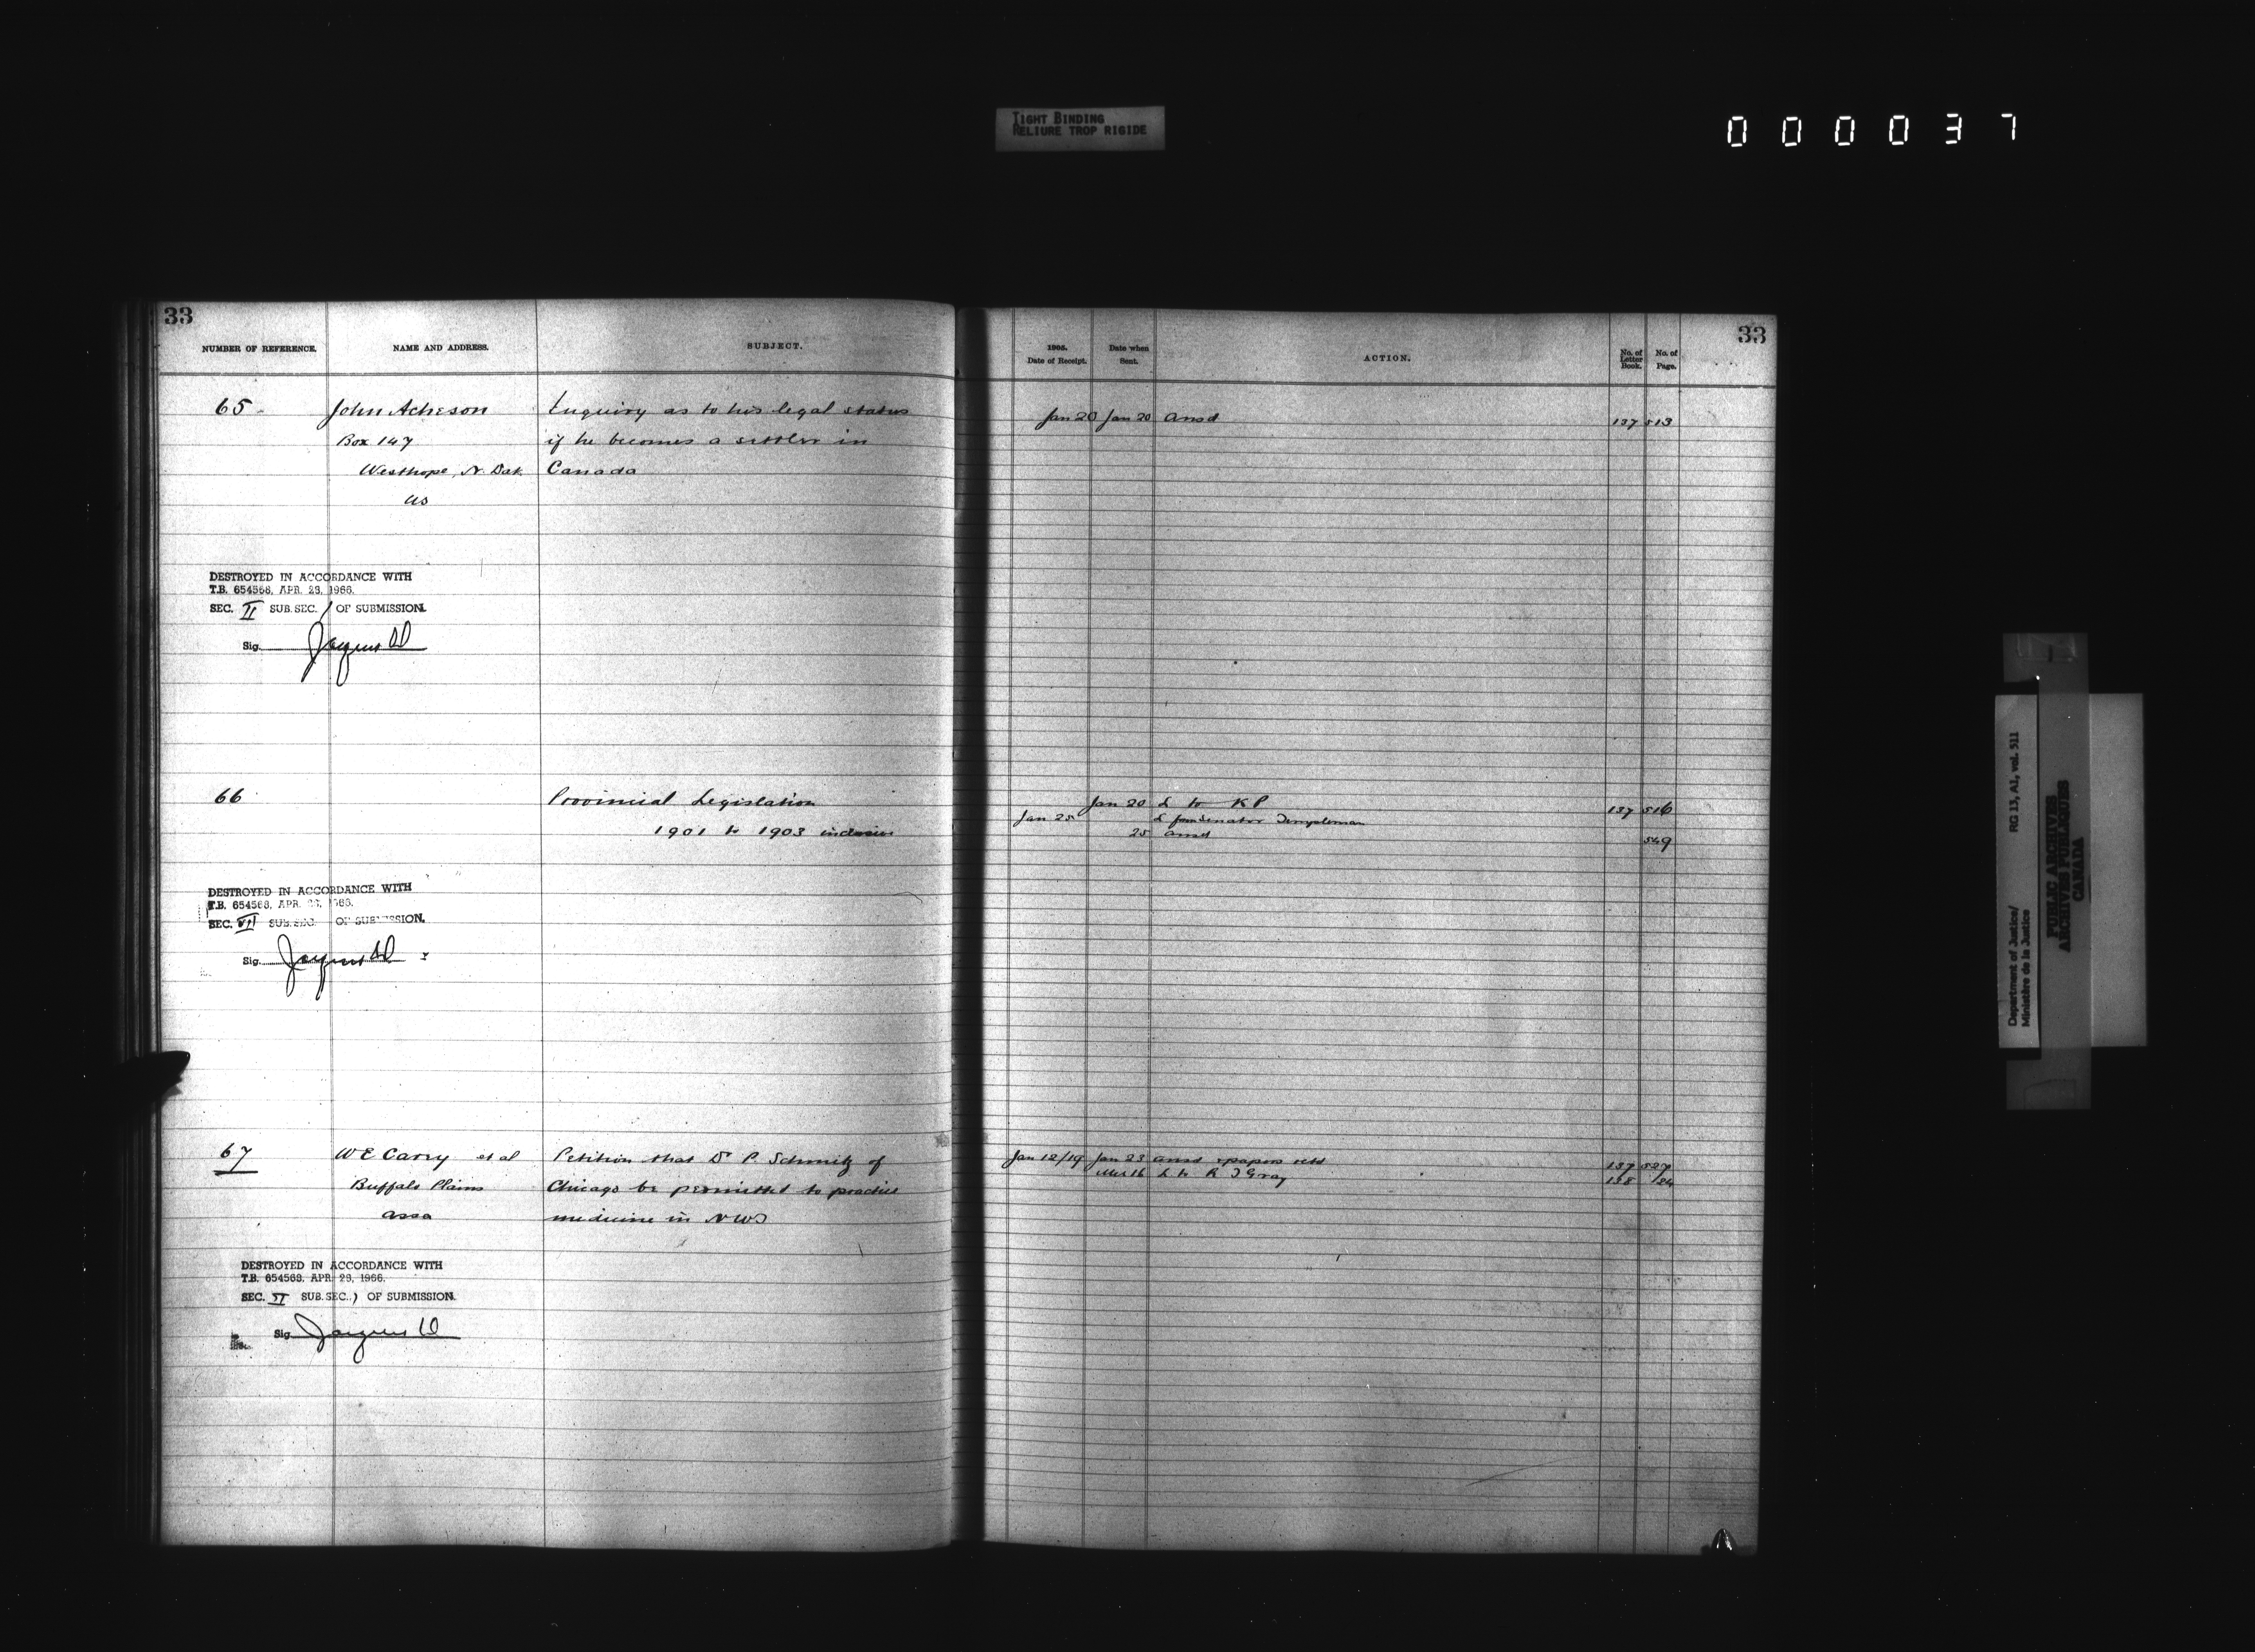 TIGHT BINDING
RELIURE TROP RIGIDE
000037
33
NUMBER OF REFERENCE.
NAME AND ADDRESS.
SUBJECT.
65
John Acheson
Enquiry as to his legal status
Box 147
if he becomes a settler in
Westhope, N. Dak
Canada
US
DESTROYED IN ACCORDANCE WITH
T.B. 654568, APR. 28, 1966.
SEC. II SUB.SEC. 1 OF SUBMISSION.
Sig.
66
Provincial Legislation
1901 to 1903 inclusive
DESTROYED IN ACCORDANCE WITH
T.B. 654568, APR. 28, 1966.
SEC. VII SUB.SEC. OF SUBMISSION.
Sig.
67
W E Carry et al
Petition that Dr P. Schmitz of
Buffalo Plains
Chicago be permitted to practice
assa
medicine in NWT
DESTROYED IN ACCORDANCE WITH
T.B. 654568, APR. 28, 1966.
SEC. VI SUB.SEC. 1 OF SUBMISSION.
Sig.
33
1905.
Date of Receipt.
Date when
Sent.
ACTION.
No. of
Letter
Book.
No. of
Page.
Jan 20 Jan 20 ansd 137 513
Jan 20 L to K P 137 516
Jan 25 L from Senator Templeman
25 ansd 549
Jan 12/19 Jan 23 ansd papers retd 137 527
Mch 16 L to R J Gray 138
Department of Justice/
Ministère de la Justice
RG 13, A1, vol. 511
PUBLIC ARCHIVES
ARCHIVES PUBLIQUES
CANADA